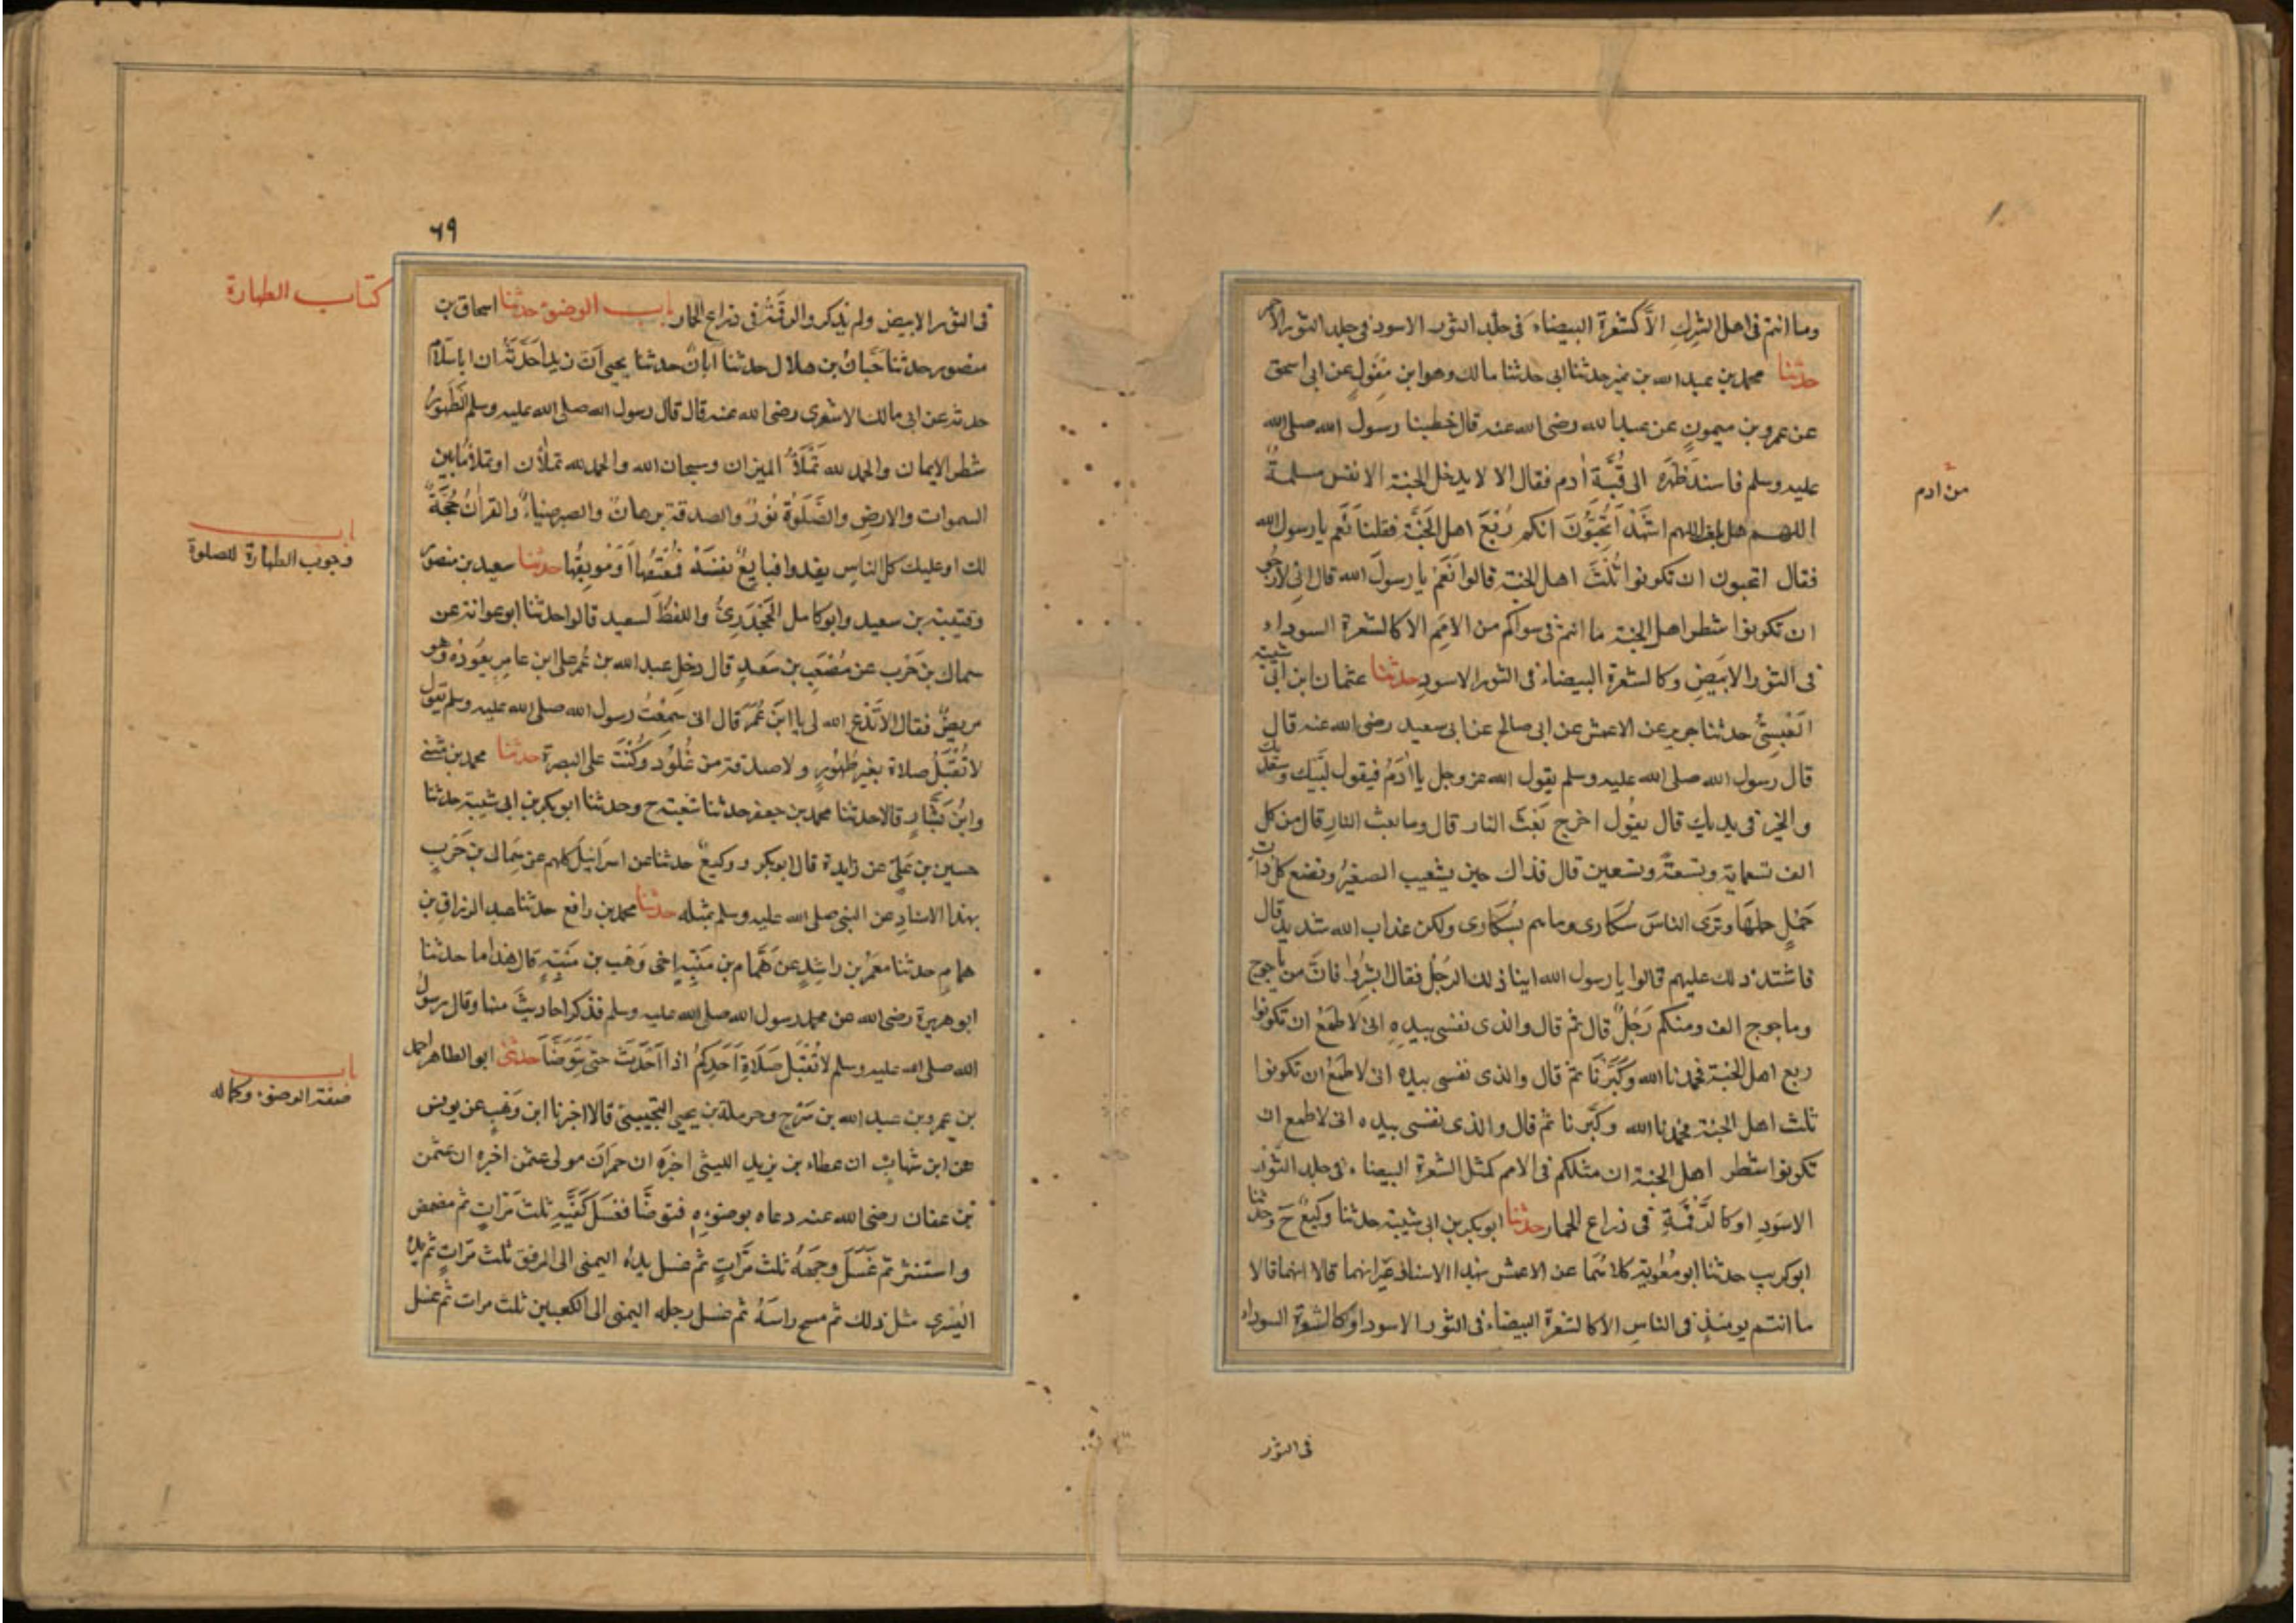 وما انتم فى اهل الشرك الا كشعرة البيضاء فى جلد الثور الاسود فى جلد الثور الاحمر
حدثنا محمد بن عبد الله بن نمير حدثنا ابى حدثنا مالك وهو ابن مغول عن ابى اسحق
عن عمرو بن ميمون عن عبد الله رضى الله عنه قال خطبنا رسول الله صلى الله
عليه وسلم فاسند ظهره الى قبة ادم فقال الا لا يدخل الجنة الا نفس مسلمة
من ادم
اللهم هل بلغت اللهم اشهد اتحبون انكم ربع اهل الجنة فقلنا نعم يا رسول الله
فقال اتحبون ان تكونوا ثلث اهل الجنة قالوا نعم يا رسول الله قال انى لارجو
ان تكونوا شطر اهل الجنة ما انتم فى سواكم من الامم الا كالشعرة السوداء
فى الثور الابيض وكالشعرة البيضاء فى الثور الاسود حدثنا عثمان ابن ابى شيبة
العبسى حدثنا جرير عن الاعمش عن ابى صالح عن ابى سعيد رضى الله عنه قال
قال رسول الله صلى الله عليه وسلم يقول الله عز وجل يا ادم فيقول لبيك وسعديك
والخير فى يديك قال يقول اخرج بعث النار قال وما بعث النار قال من كل
الف تسعماية وتسعة وتسعين قال فذاك حين يشيب الصغير وتضع كل ذات
حمل حملها وترى الناس سكارى وما هم بسكارى ولكن عذاب الله شديد قال
فاشتد ذلك عليهم قالوا يا رسول الله اينا ذلك الرجل فقال ابشروا فان من ياجوج
وماجوج الف ومنكم رجل قال ثم قال والذى نفسى بيده انى لاطمع ان تكونوا
ربع اهل الجنة فحمدنا الله وكبرنا ثم قال والذى نفسى بيده انى لاطمع ان تكونوا
ثلث اهل الجنة فحمدنا الله وكبرنا ثم قال والذى نفسى بيده انى لاطمع ان
تكونوا شطر اهل الجنة ان مثلكم فى الامم كمثل الشعرة البيضاء فى جلد الثور
الاسود او كالرقمة فى ذراع الحمار حدثنا ابو بكر بن ابى شيبة حدثنا وكيع ح وحدثنا
ابو كريب حدثنا ابو معوية كلاهما عن الاعمش بهذا الاسناد غير انهما قالا انهما قالا
ما انتم يومئذ فى الناس الا كالشعرة البيضاء فى الثور الاسود او كالشعرة السوداء
فى الثور
٦٩
كتاب الطهارة
فى الثور الابيض ولم يذكر والرقمة فى ذراع الحمار باب الوضوء حدثنا اسحاق بن
منصور حدثنا حبان بن هلال حدثنا ابان حدثنا يحيى ان زيدا حدثه ان ابا سلام
حدثه عن ابى مالك الاشعرى رضى الله عنه قال قال رسول الله صلى الله عليه وسلم الطهور
شطر الايمان والحمد لله تملأ الميزان وسبحان الله والحمد لله تملأن او تملأ ما بين
السموات والارض والصلوة نور والصدقة برهان والصبر ضياء والقران حجة
باب
وجوب الطهارة للصلوة
لك او عليك كل الناس يغدوا فبايع نفسه فمعتقها او موبقها حدثنا سعيد بن منصور
وقتيبة بن سعيد وابو كامل الجحدرى واللفظ لسعيد قالوا حدثنا ابو عوانة عن
سماك بن حرب عن مصعب بن سعد قال دخل عبد الله بن عمر على ابن عامر يعوده وهو
مريض فقال الا تدع الله لى يا ابن عمر قال انى سمعت رسول الله صلى الله عليه وسلم يقول
لا تقبل صلاة بغير طهور ولا صدقة من غلول وكنت على البصرة حدثنا محمد بن مثنى
وابن بشار قالا حدثنا محمد بن جعفر حدثنا شعبة ح وحدثنا ابو بكر بن ابى شيبة حدثنا
حسين بن على عن زايدة قال ابو بكر ووكيع حدثنا عن اسرائيل كلهم عن سماك بن حرب
بهذا الاسناد عن النبى صلى الله عليه وسلم بمثله حدثنا محمد بن رافع حدثنا عبد الرزاق بن
همام حدثنا معمر بن راشد عن همام بن منبه اخى وهب بن منبه قال هذا ما حدثنا
ابو هريرة رضى الله عن محمد رسول الله صلى الله عليه وسلم فذكر احاديث منها وقال رسول
الله صلى الله عليه وسلم لا تقبل صلاة احدكم اذا احدث حتى يتوضأ حدثنى ابو الطاهر احمد
باب
صفة الوضوء وكماله
بن عمرو بن عبد الله بن سرح وحرملة بن يحيى التجيبى قالا اخبرنا ابن وهب عن يونس
عن ابن شهاب ان عطاء بن يزيد الليثى اخبره ان حمران مولى عثمن اخبره ان عثمن
بن عفان رضى الله عنه دعاه بوضوءه فتوضأ فغسل كفيه ثلث مرات ثم مضمض
واستنثر ثم غسل وجهه ثلث مرات ثم غسل يده اليمنى الى المرفق ثلث مرات ثم يده
اليسرى مثل ذلك ثم مسح راسه ثم غسل رجله اليمنى الى الكعبين ثلث مرات ثم غسل